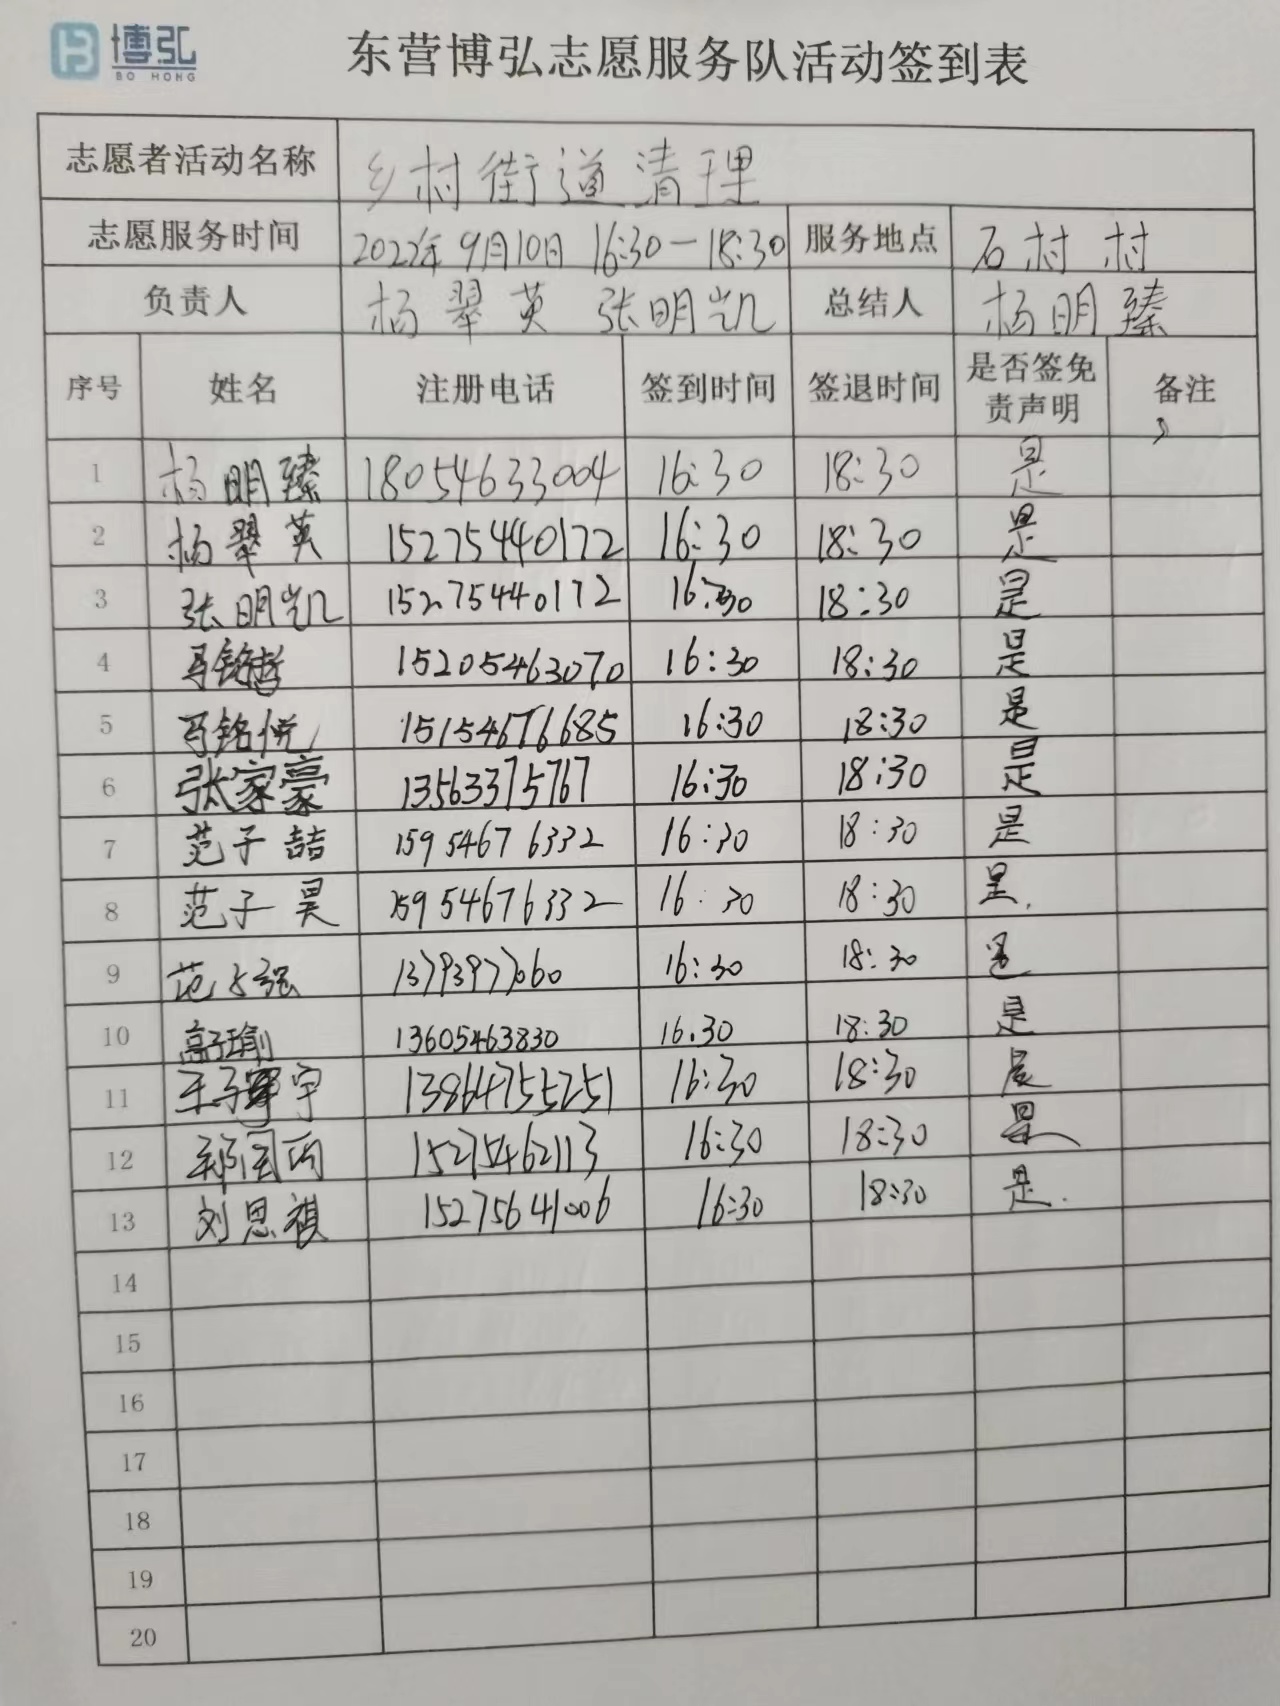 博弘
BO HONG
东营博弘志愿服务队活动签到表
志愿者活动名称 乡村街道清理
志愿服务时间 2022年9月10日 16:30—18:30 服务地点 石村村
负责人 杨翠英 张明凯 总结人 杨明臻
序号 姓名 注册电话 签到时间 签退时间 是否签免责声明 备注
1 杨明臻 18054633004 16:30 18:30 是
2 杨翠英 15275440172 16:30 18:30 是
3 张明凯 15275440172 16:30 18:30 是
4 马铭哲 15205463070 16:30 18:30 是
5 马铭悦 15154676685 16:30 18:30 是
6 张家豪 13563375767 16:30 18:30 是
7 范子喆 15954676332 16:30 18:30 是
8 范子昊 15954676332 16:30 18:30 是.
9 范 13793977060 16:30 18:30 是
10 高子瑜 13605463830 16.30 18:30 是
11 王子 宇 13864755251 16:30 18:30 是
12 15275462113 16:30 18:30 是
13 刘思祺 15275641006 16:30 18:30 是.
14
15
16
17
18
19
20